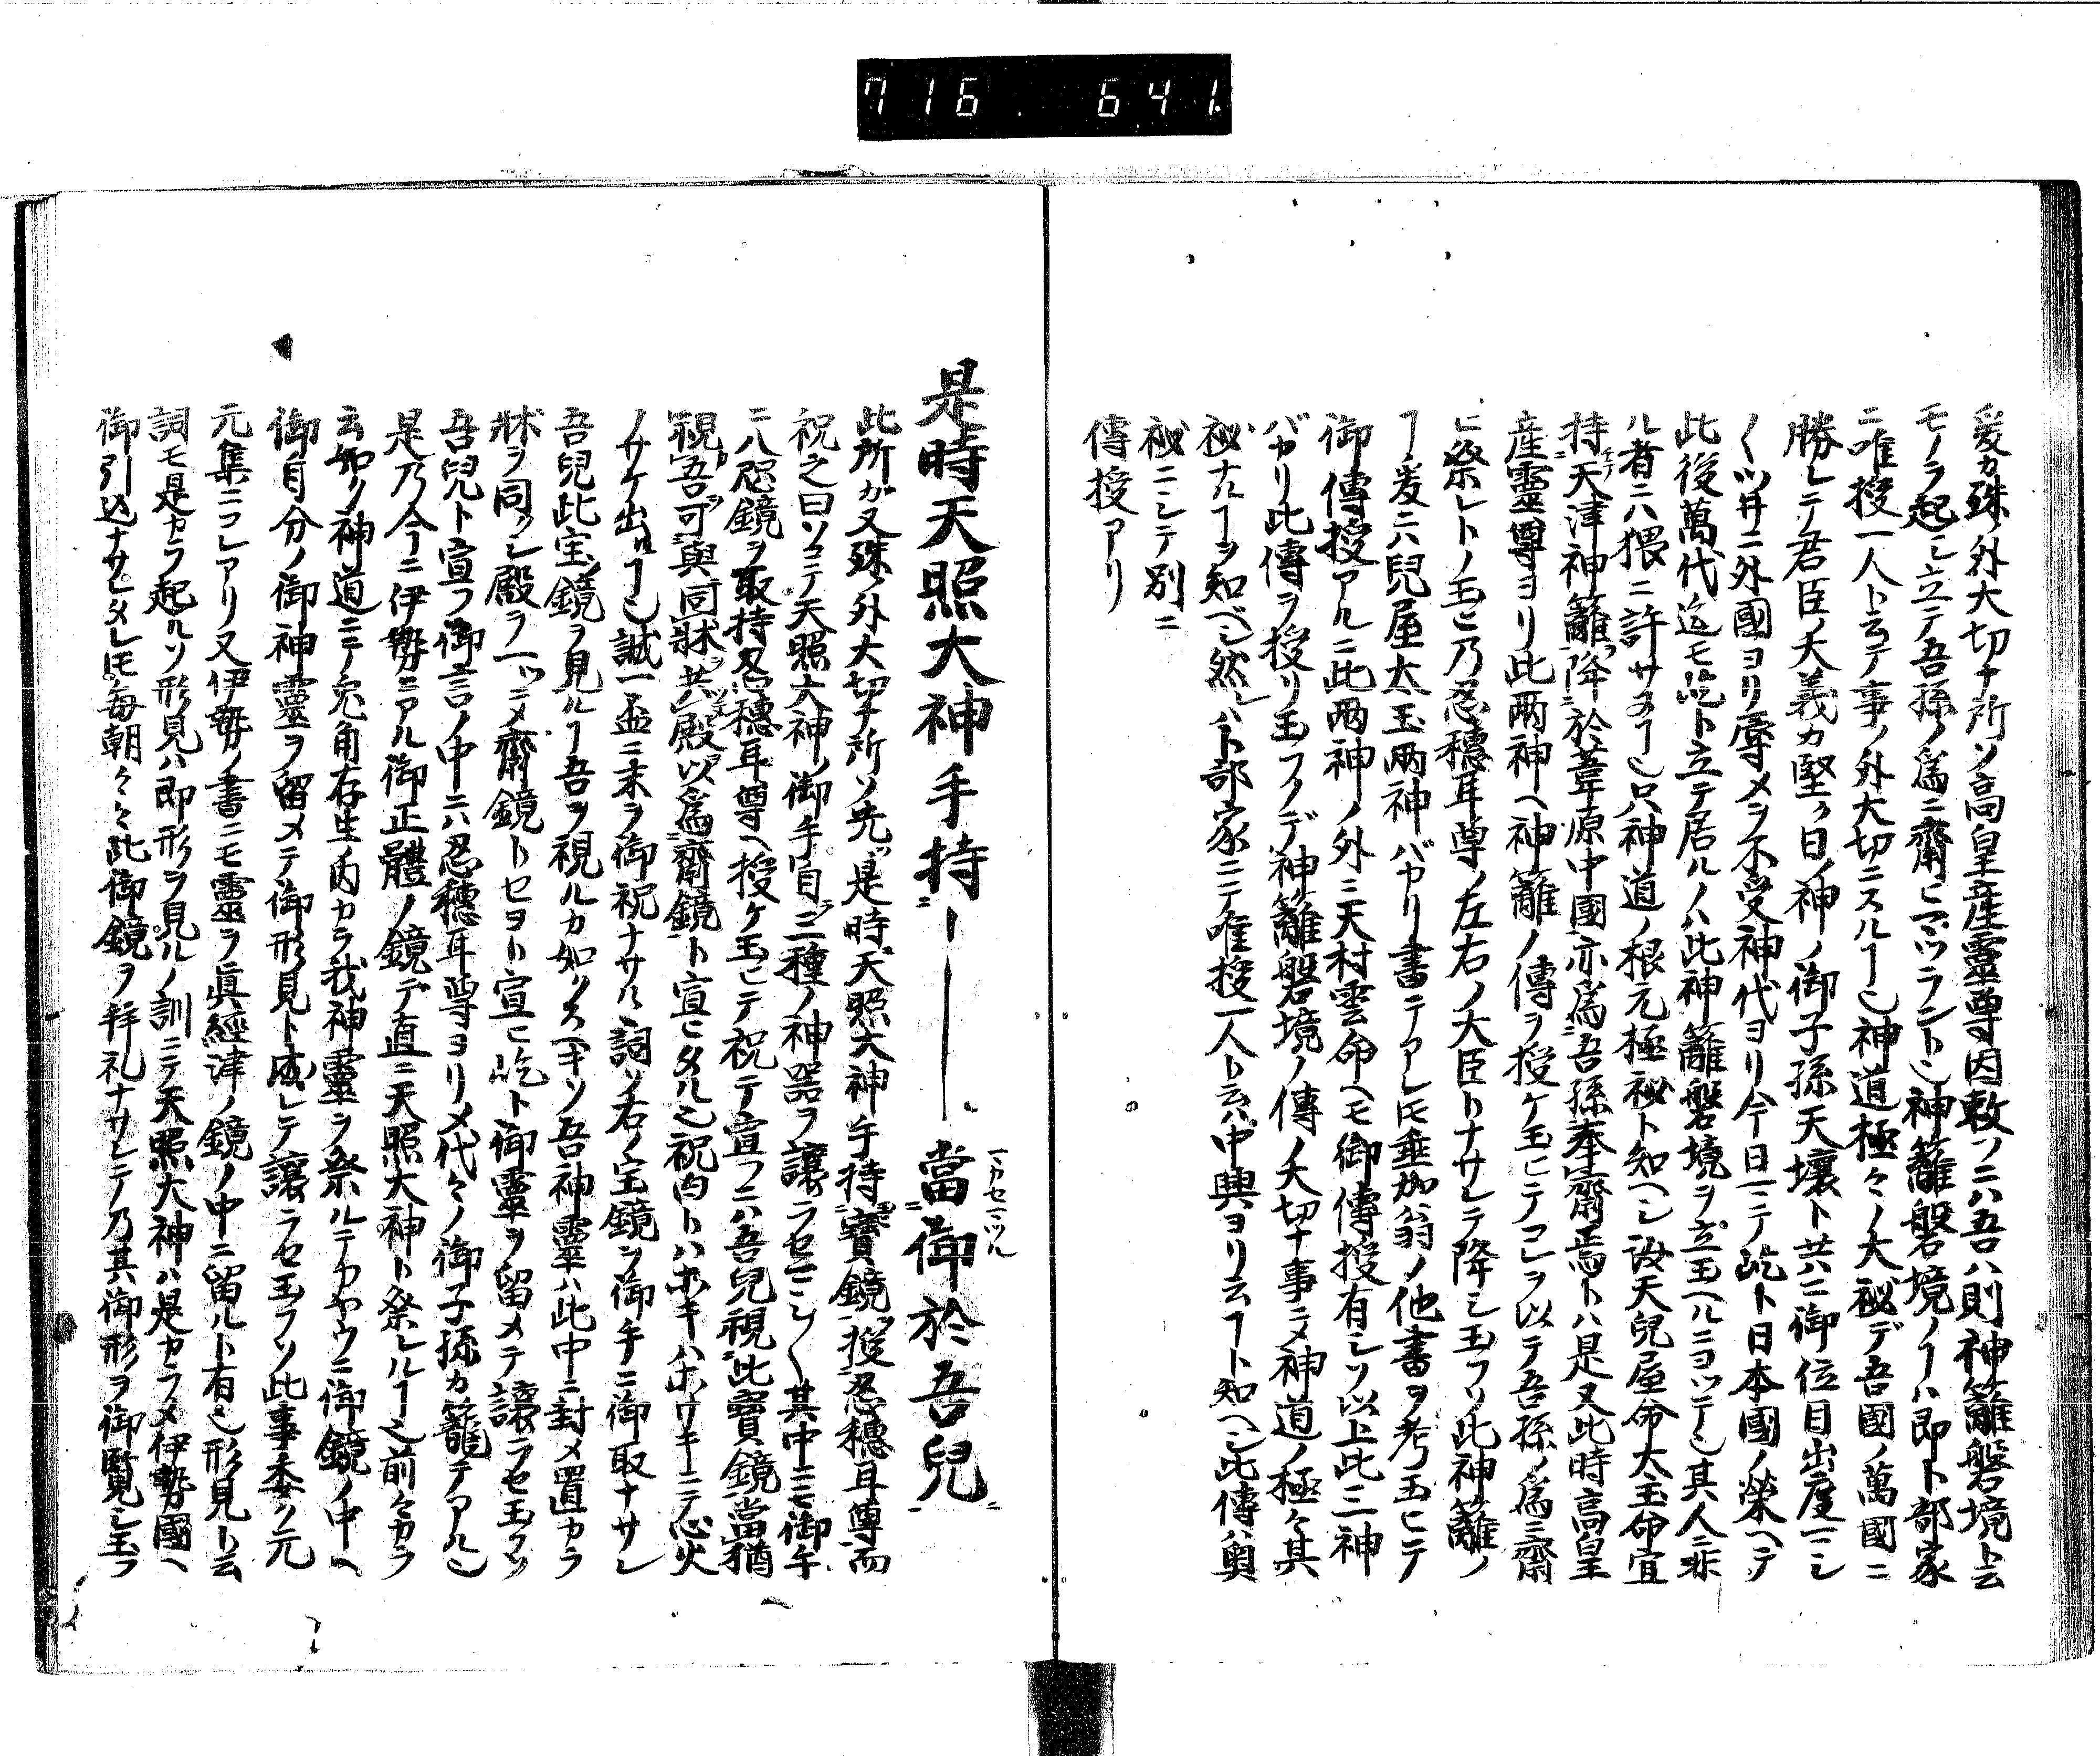 716. 641.
爰カ殊ノ外大切ナ所ソ高皇産靈尊因敕ソニハ吾ハ則神籬磐境ト云
モノヲ起シ立テ吾孫ノ爲ニ齋ヒマツラントヿ神籬磐境ノヿハ即卜部家
ニ唯授一人ト云テ事ノ外大切ニスルヿ也神道極々ノ大秘デ吾國ノ萬國ニ
勝レテ君臣ノ大義カ堅ク日ノ神ノ御子孫天壤ト共ニ御位目出度マシ
〱ツ井ニ外國ヨリ辱メヲ不受神代ヨリ今日マテ屹ト日本國ノ榮ヘテ
此後萬代迄モ屹ト立テ居ルノハ此神籬磐境ヲ立玉ヘルニヨツテ也其人ニ非
ル者ニハ猥ニ許サヌヿ也只神道ノ根元極秘ト知ヘシ汝天兒屋命太玉命宜
持天津神籬降於葦原中國亦爲吾孫奉齋焉トハ是又此時高皇
産靈尊ヨリ此两神ヘ神籬ノ傳ヲ授ケ玉ヒテコレヲ以テ吾孫ノ爲ニ齋
ヒ祭レトノ玉ヒ乃忍穗耳尊ノ左右ノ大臣トナサレテ降シ玉フソ此神籬ノ
ヿ爰ニハ兒屋太玉两神バカリ書テアレ𪜈垂加翁ノ他書ヲ考玉ヒテ
御傳授アルニ此两神ノ外ニ天村雲命ヘモ御傳授有シソ以上此三神
バカリ此傳ヲ授リ玉フソデ神籬磐境ノ傳ノ大切ナ事ニメ神道ノ極々其
秘ナルヿヲ知ベシ然レハ卜部家ニテ唯授一人ト云ハ中興ヨリ云フヿト知ヘシ此傳ハ奥
秘ニシテ別ニ
傳授アリ
是時天照大神手持ーーー當御於吾兒
マカセマツル
此所ガ又殊ノ外大切ナ所ソ先是時天照大神手持寶鏡授忍穗耳尊而
祝之曰ソコテ天照大神ノ御手自三種ノ神器ヲ讓ラセマシ〱其中ニモ御手
ニ八咫鏡ヲ取持忍穗耳尊ヘ授ケ玉ヒテ祝テ宣フニハ吾兒視此寶鏡當猶
視吾可與同牀共殿以爲齋鏡ト宣ヒタル也祝内トハホキハホサキニテ心火
ノサケ出ルヿ也誠一盃ニ末ヲ御祝ナサル詞ソ右ノ宝鏡ヲ御手ニ御取ナサレ
吾兒此宝鏡ヲ見ルヿ吾ヲ視ルカ如クスヘキソ吾神靈ハ此中ニ封メ置カラ
牀ヲ同クシ殿ヲ一ツニメ齋鏡トセヨト宣ヒ屹ト御靈ヲ留メテ讓ラセ玉フソ
吾兒ト宣フ御言ノ中ニハ忍穗耳尊ヨリメ代々ノ御子孫カ籠テアル也
是乃今ヿニ伊勢ニアル御正體ノ鏡デ直ニ天照大神ト祭レルヿ也前々カラ
云如ク神道ニテ兎角存生ノ内カラ我神靈ヲ祭ルテカヤウニ御鏡ノ中ヘ
御自分ノ御神靈ヲ留メテ御形見ト成レテ讓ラセ玉フソ此事委ク元
元集ニコレアリ又伊勢ノ書ニモ靈ヲ眞經津ノ鏡ノ中ニ留ルト有也形見ト云
詞モ是カラ起ルソ形見ハ即形ヲ見ルノ訓ニテ天照大神ハ是カラメ伊勢國ヘ
御引込ナサレタレ𪜈毎朝々々此御鏡ヲ拜礼ナサレテノ乃其御形ヲ御覧シ玉フ